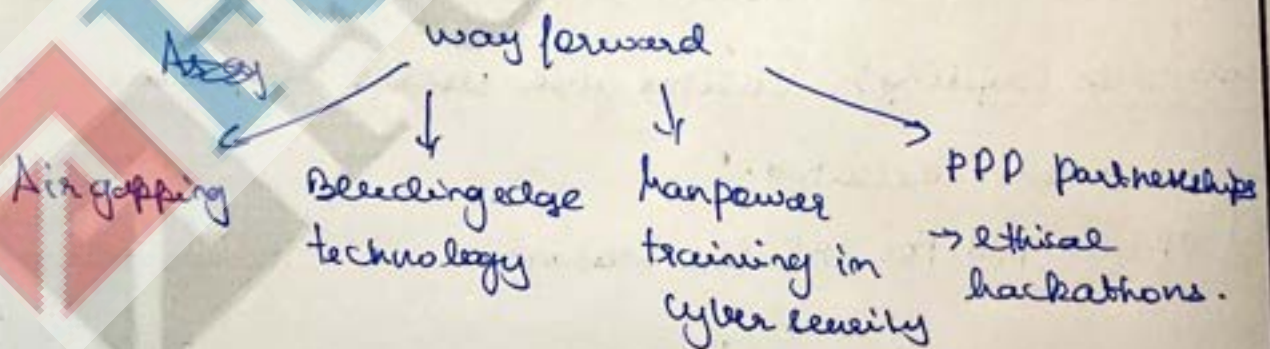 way forward
Air gapping
Bleeding edge
technology
Manpower
training in
cyber security
PPP partnerships
→ ethical
hackathons.